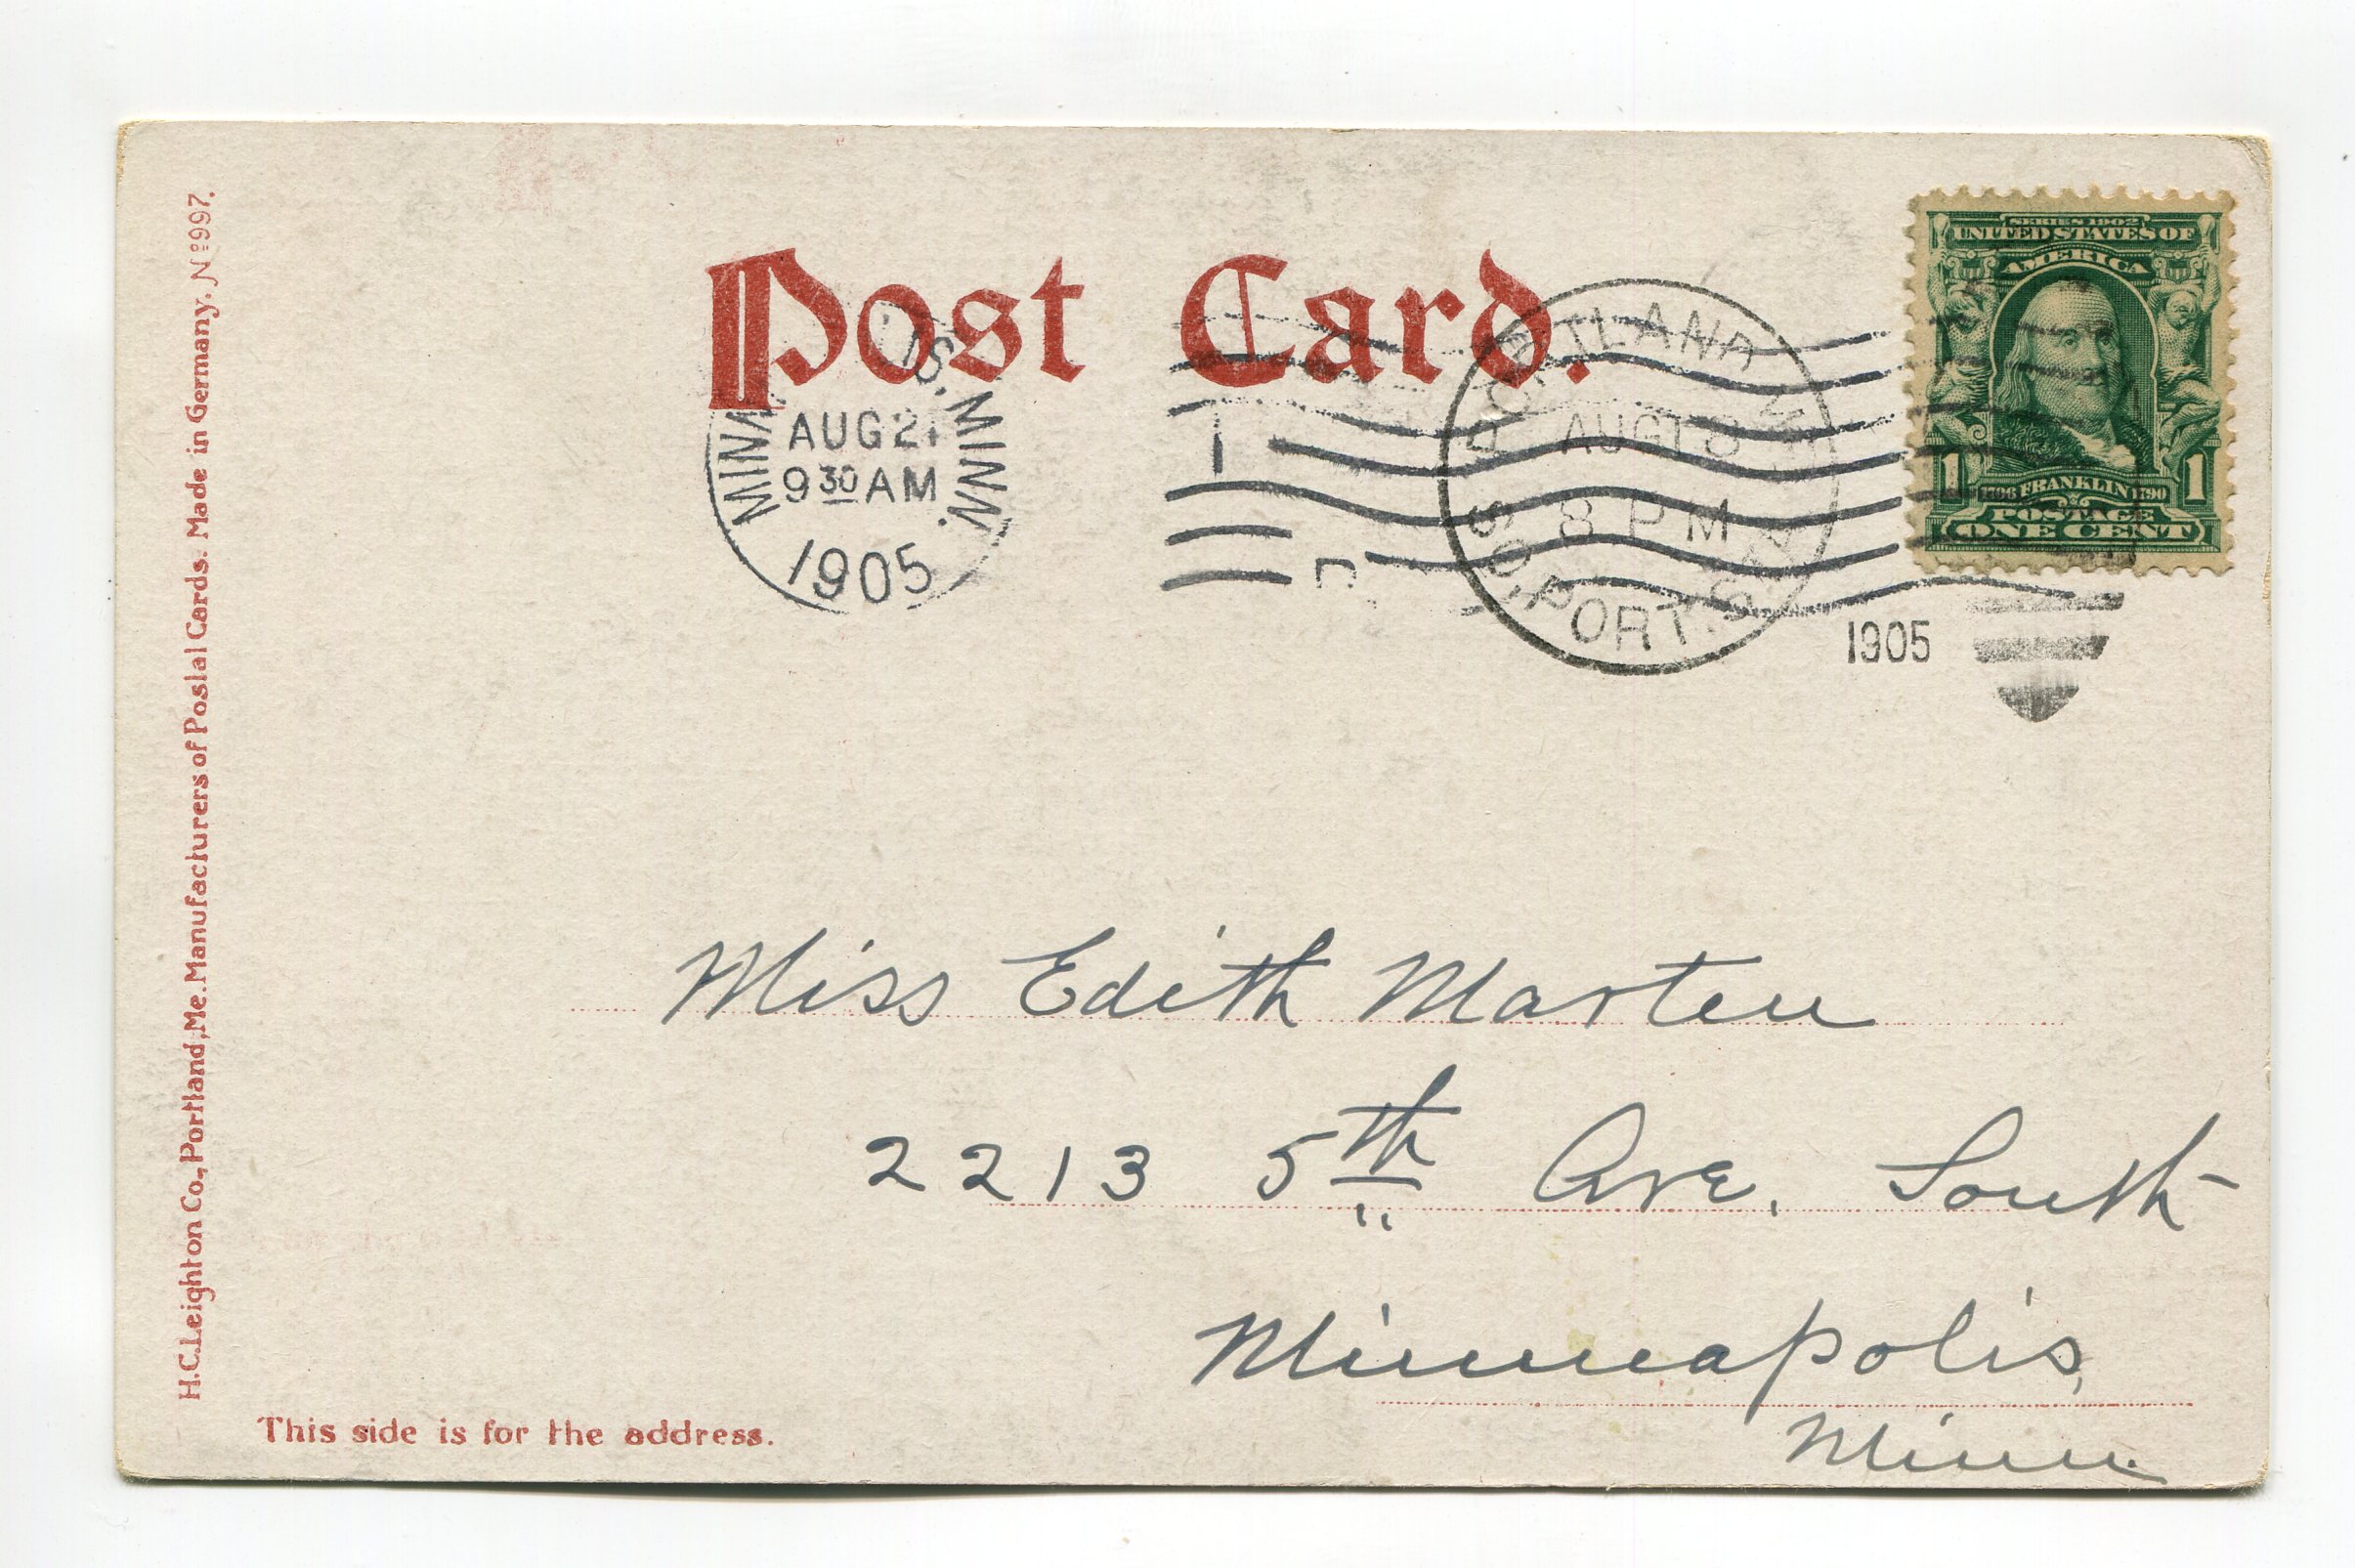 H.C.Leighton Co., Portland, Me. Manufacturers of Postal Cards. Made in Germany. Nº 997.
Post Card.
SERIES 1902
UNITED STATES OF
AMERICA
1 1
1706 FRANKLIN 1790
POSTAGE
ONE CENT
IS. MINN.
AUG 21
9 30 AM
1905
PORTLAND, ME.
AUG 18
8 PM
SO. PORT. STA.
1905
Miss Edith Marten
2213 5th Ave. South
Minneapolis,
Minn.
This side is for the address.